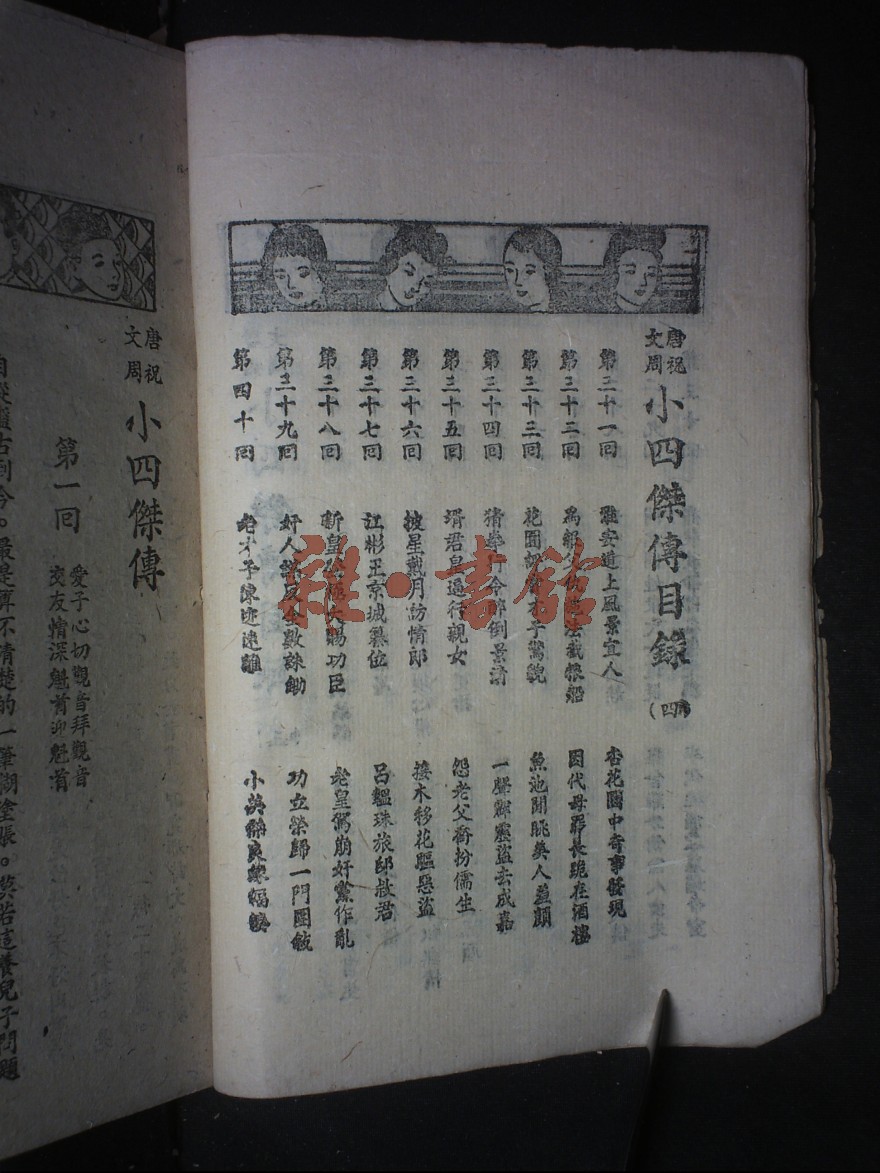 唐祝
文周
小四傑傳目錄
(四)
第三十一回 雅安道上風景宜人 杏花園中奇事發現
第三十二回 為報父仇 法截糧船 因代母罪長跪在酒樓
第三十三回 花園 才子驚貌 魚池閒眺美人益顏
第三十四回 猜拳行令醉倒景清 一聲 盜去成嘉
第三十五回 壻君皇過行親女 怨老父喬扮儒生
第三十六回 披星戴月訪情郎 接木移花驅惡盜
第三十七回 江彬王京城纂位 呂韞珠旅邸救君
第三十八回 新皇 賜功臣 老皇駕崩奸黨作亂
第三十九回 奸人謀反全數誅鋤 功立榮歸一門團敍
第四十回 老才子 迹遠離 小
雜·書館
唐祝
文周
小四傑傳
第一回
愛子心切觀音拜觀音
交友情深魁首迎魁首
自從盤古到今。最是算不清楚的一筆糊塗賬。莫若這養兒子問題